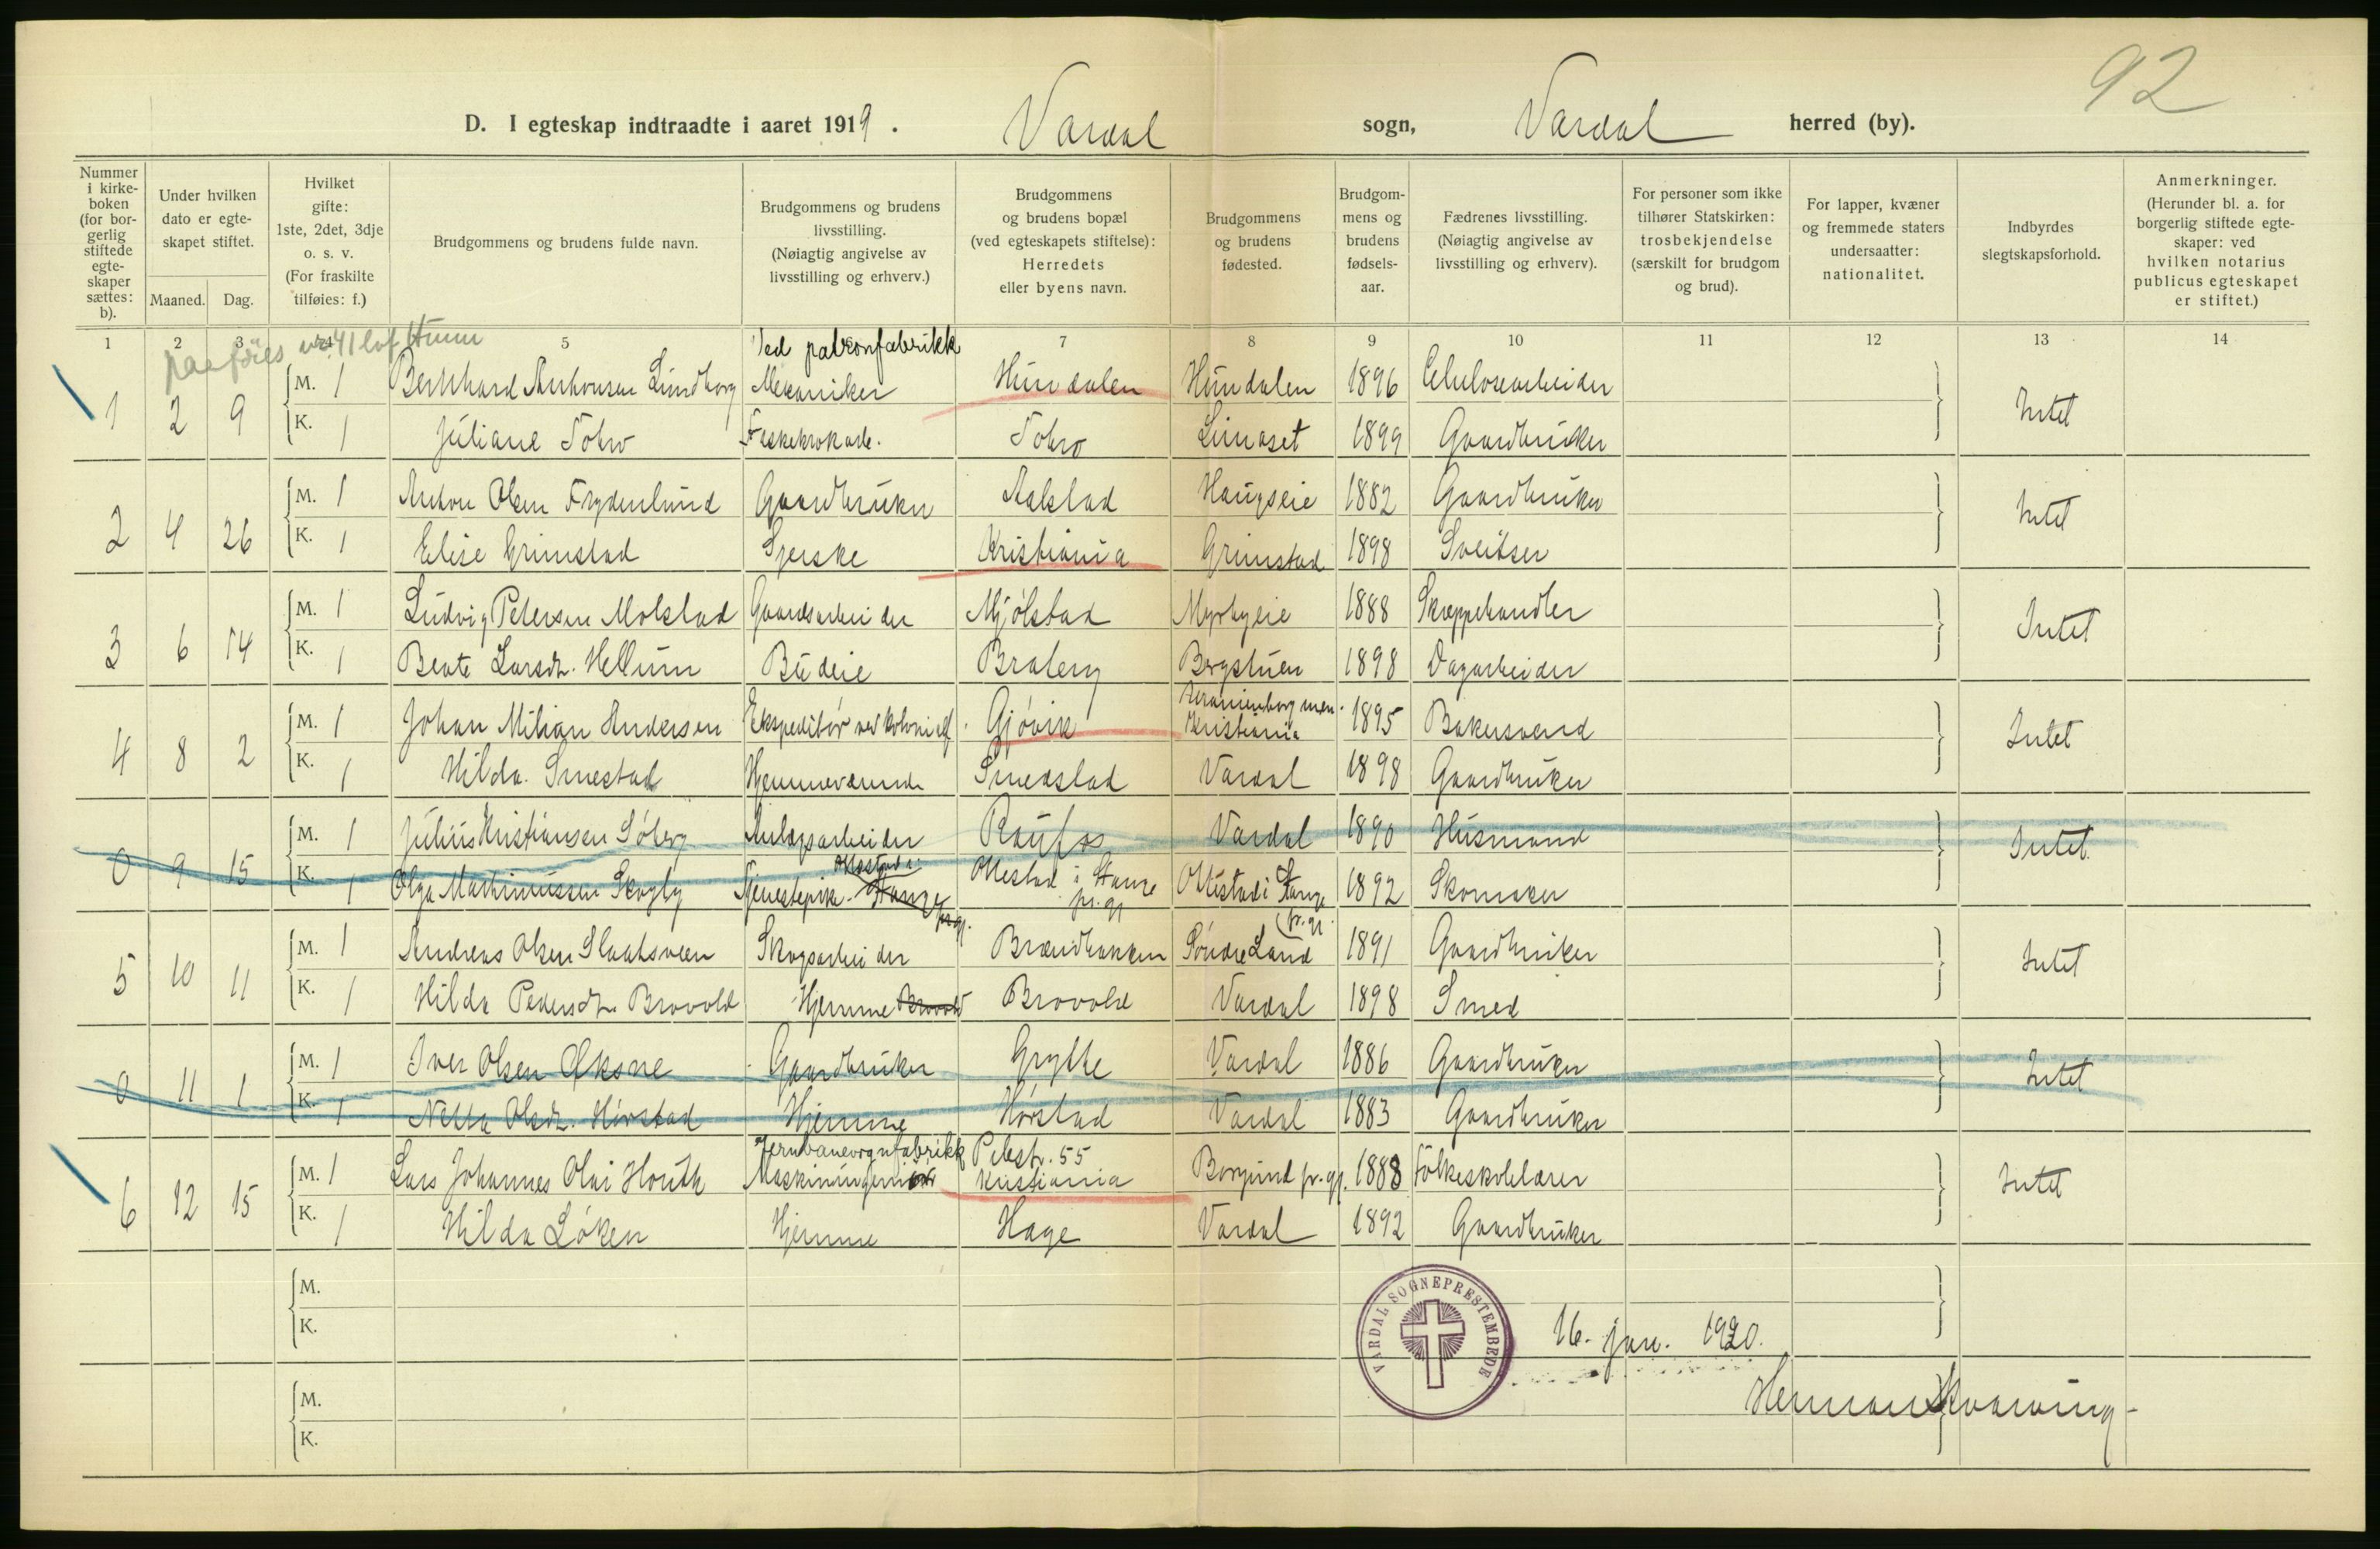 92
D. I egteskap indtraadte i aaret 1919. Vardal sogn, Vardal herred (by).
Nummer i kirkeboken (for borgerlig stiftede egteskaper sættes: b).
Under hvilken dato er egteskapet stiftet.
Maaned. Dag.
Hvilket gifte: 1ste, 2det, 3dje o. s. v. (For fraskilte tilføies: f.)
Brudgommens og brudens fulde navn.
Brudgommens og brudens livsstilling. (Nøiagtig angivelse av livsstilling og erhverv.)
Brudgommens og brudens bopæl (ved egteskapets stiftelse): Herredets eller byens navn.
Brudgommens og brudens fødested.
Brudgommens og brudens fødselsaar.
Fædrenes livsstilling. (Nøiagtig angivelse av livsstilling og erhverv).
For personer som ikke tilhører Statskirken: trosbekjendelse (særskilt for brudgom og brud).
For lapper, kvæner og fremmede staters undersaatter: nationalitet.
Indbyrdes slegtskapsforhold.
Anmerkninger. (Herunder bl. a. for borgerlig stiftede egteskaper: ved hvilken notarius publicus egteskapet er stiftet.)
1 2 3 4 5 7 8 9 10 11 12 13 14
paaføies nr 41
Ved patronfabrikk
1 2 9 M. 1 Bernhard Lundborg Mekaniker Hundalen Hundalen 1896 Celulosearbeider Intet
K. 1 Juliane Tobro Tobro 1899 Gaardbruker
2 4 26 M. 1 Anton Olsen Frydenlund Gaardbruker Aalstad Haugseie 1882 Gaardbruker Intet
K. 1 Elise Grimstad Syerske Kristiania Grimstad 1898 Sveitser
3 6 14 M. 1 Ludvig Petersen Molstad Gaardsarbeider Mjölstad Myrbyeie 1888 Skreppehandler Intet
K. 1 Beate Larsdr. Hellum Budeie Braberg Bergstuen 1898 Dagarbeider
Uranienborg men.
4 8 2 M. 1 Johan Milian Andersen Ekspeditör ved kolonialf. Gjövik Kristiania 1895 Bakersvend Intet
K. 1 Hilda Smestad Hjemmeværende Smedstad Vardal 1898 Gaardbruker
0 9 15 M. 1 Julius Kristiansen Söberg Anlægsarbeider Raufos Vardal 1890 Husmand Intet
Ottestad i
K. 1 Olga Skogly Tjenestepike Stange Ottestad i Stange Ottestad i Stange 1892 Skomaker
pr.gj. pr.gj pr.gj.
5 10 11 M. 1 Andreas Olsen Slaatsveen Skogsarbeider Brændbakken Söndre Land 1891 Gaardbruker Intet
K. 1 Hilda Pedersdr. Brovold Hjemme Brovold Brovold Vardal 1898 Smed
0 11 1 M. 1 Iver Olsen Öksne Gaardbruker Grytte Vardal 1886 Gaardbruker Intet
K. 1 Netta Olsdr. Hörstad Hjemme Hörstad Vardal 1883 Gaardbruker
Jernbanevognfabrikk Pilestr. 55
6 12 15 M. 1 Lars Johannes Olai Houth Maskiningeniör Kristiania Borgund pr.gj. 1888 Folkeskolelærer Intet
K. 1 Hilda Löken Hjemme Hage Vardal 1892 Gaardbruker
M.
K.
VARDAL SOGNEPRESTEMBEDE
16. jan. 1920.
M.
K.
Herman Kvaring